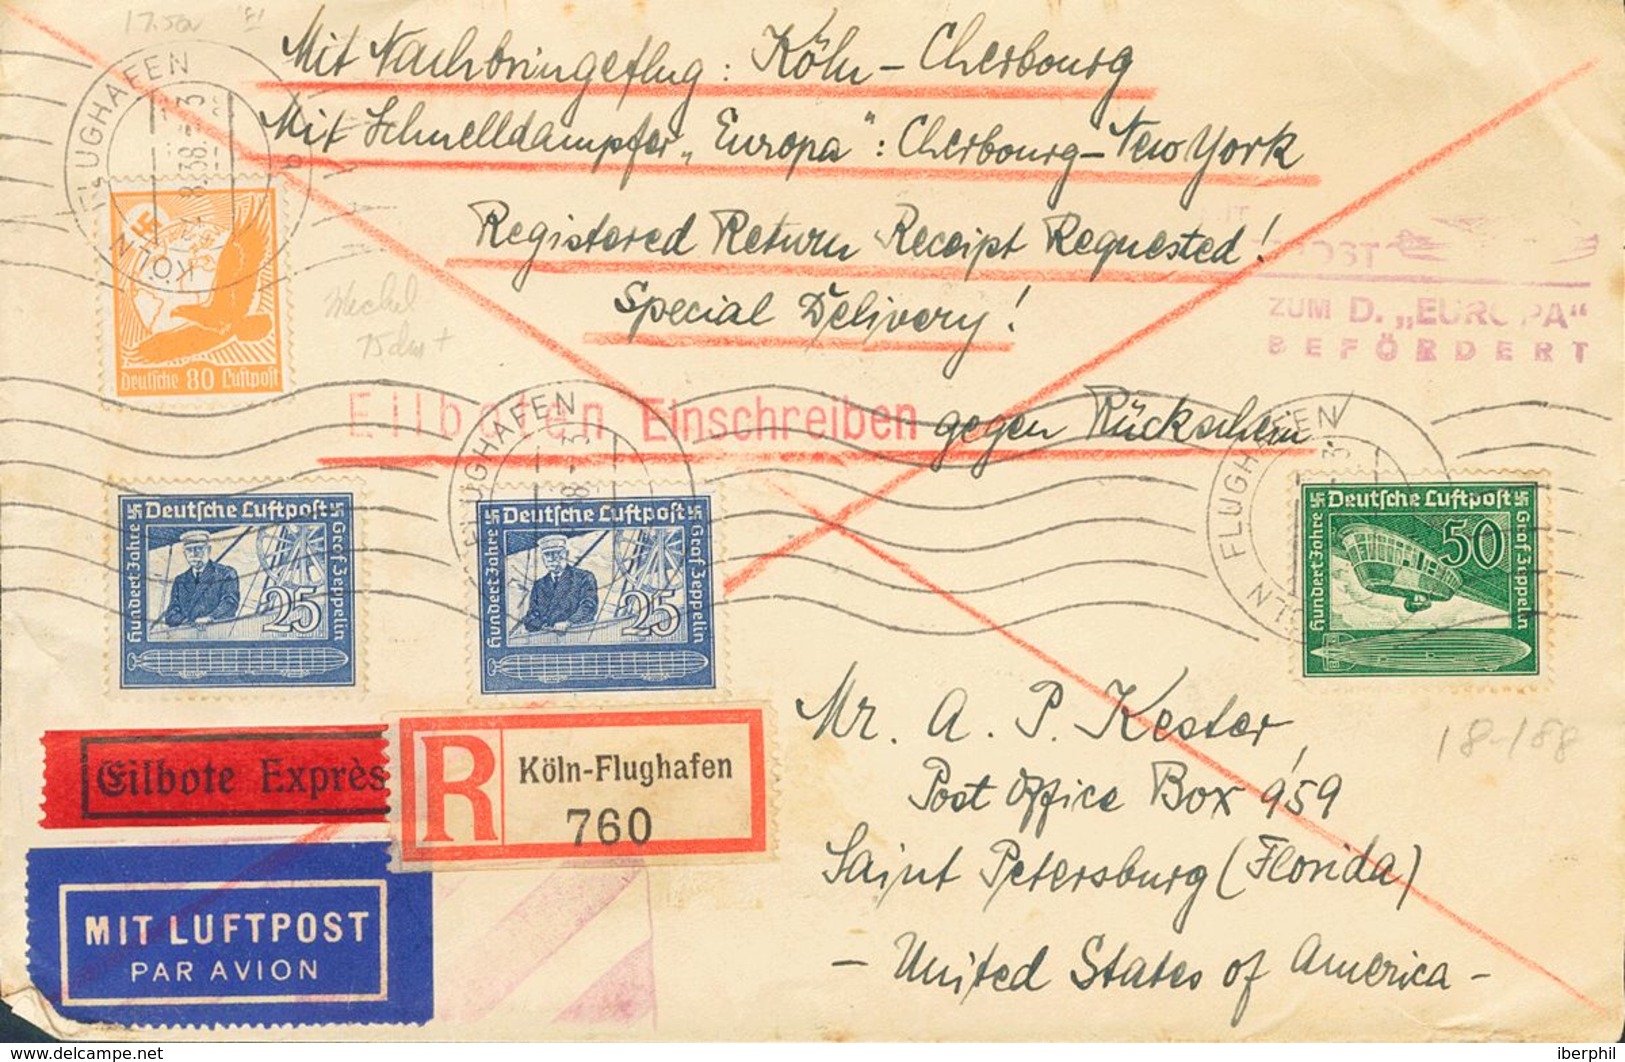 Mit Nachbringeflug: Köln – Cherbourg
Mit Schnelldampfer „Europa": Cherbourg – New York
Registered Return Receipt Requested!
Special Delivery!
Eilboten Einschreiben gegen Rückschein.
POST
ZUM D. „EUROPA"
BEFÖRDERT
KÖLN FLUGHAFEN
Deutsche 80 Luftpost
KÖLN FLUGHAFEN
KÖLN FLUGHAFEN
Deutsche Luftpost
Hundert Jahre
Graf Zeppelin
25
Deutsche Luftpost
Hundert Jahre
Graf Zeppelin
25
Deutsche Luftpost
Hundert Jahre
Graf Zeppelin
50
Eilbote Exprès
R
Köln-Flughafen
760
MIT LUFTPOST
PAR AVION
Mr. A. P. Kester,
Post Office Box 959
Saint Petersburg (Florida)
– United States of America –
18-188
www.delcampe.net
iberphil